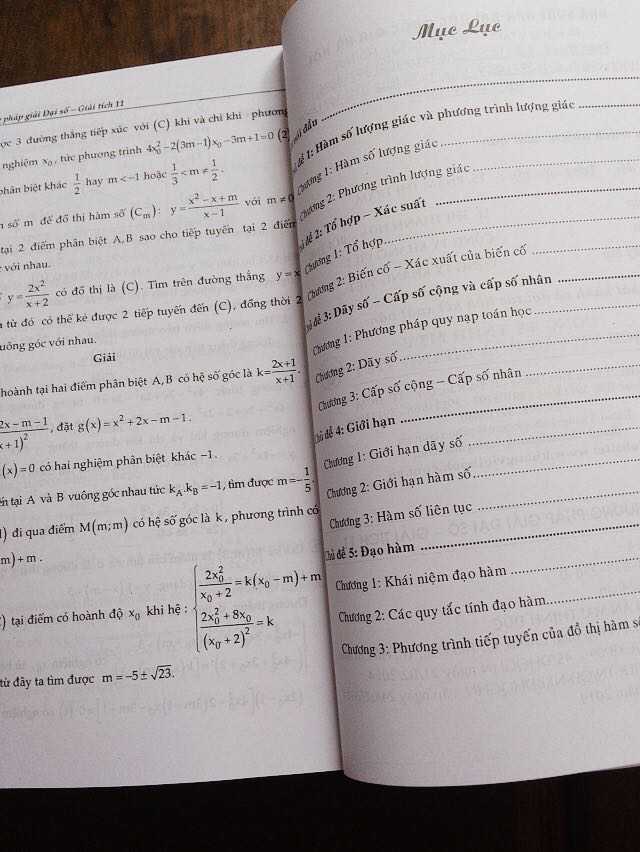 pháp giải Đại số – Giải tích 11
3 đường thẳng tiếp xúc với (C) khi và chỉ khi phương
nghiệm x₀, tức phương trình 4x₀² – 2(3m–1)x₀ – 3m + 1 = 0 (2)
phân biệt khác 1/2 hay m < –1 hoặc 1/3 < m ≠ 1/2.
số m để đồ thị hàm số (Cₘ): y = (x² – x + m)/(x – 1) với m ≠ 0
tại 2 điểm phân biệt A, B sao cho tiếp tuyến tại 2 điểm
với nhau.
y = 2x²/(x + 2) có đồ thị là (C). Tìm trên đường thẳng y = x
từ đó có thể kẻ được 2 tiếp tuyến đến (C), đồng thời 2
vuông góc với nhau.
Giải
hoành tại hai điểm phân biệt A, B có hệ số góc là k = (2x + 1)/(x + 1).
2x – m – 1 / (x + 1)², đặt g(x) = x² + 2x – m – 1.
(x) = 0 có hai nghiệm phân biệt khác –1.
tại A và B vuông góc nhau tức k_A.k_B = –1, tìm được m = –1/5.
đi qua điểm M(m; m) có hệ số góc là k, phương trình có
m) + m.
tại điểm có hoành độ x₀ khi hệ: { 2x₀²/(x₀ + 2) = k(x₀ – m) + m
(2x₀² + 8x₀)/(x₀ + 2)² = k
từ đây ta tìm được m = –5 ± √23.
Mục Lục
đầu
đề 1: Hàm số lượng giác và phương trình lượng giác
Chương 1: Hàm số lượng giác
Chương 2: Phương trình lượng giác
đề 2: Tổ hợp – Xác suất
Chương 1: Tổ hợp
Chương 2: Biến cố – Xác xuất của biến cố
Chủ đề 3: Dãy số – Cấp số cộng và cấp số nhân
Chương 1: Phương pháp quy nạp toán học
Chương 2: Dãy số
Chương 3: Cấp số cộng – Cấp số nhân
Chủ đề 4: Giới hạn
Chương 1: Giới hạn dãy số
Chương 2: Giới hạn hàm số
Chương 3: Hàm số liên tục
Chủ đề 5: Đạo hàm
Chương 1: Khái niệm đạo hàm
Chương 2: Các quy tắc tính đạo hàm
Chương 3: Phương trình tiếp tuyến của đồ thị hàm số